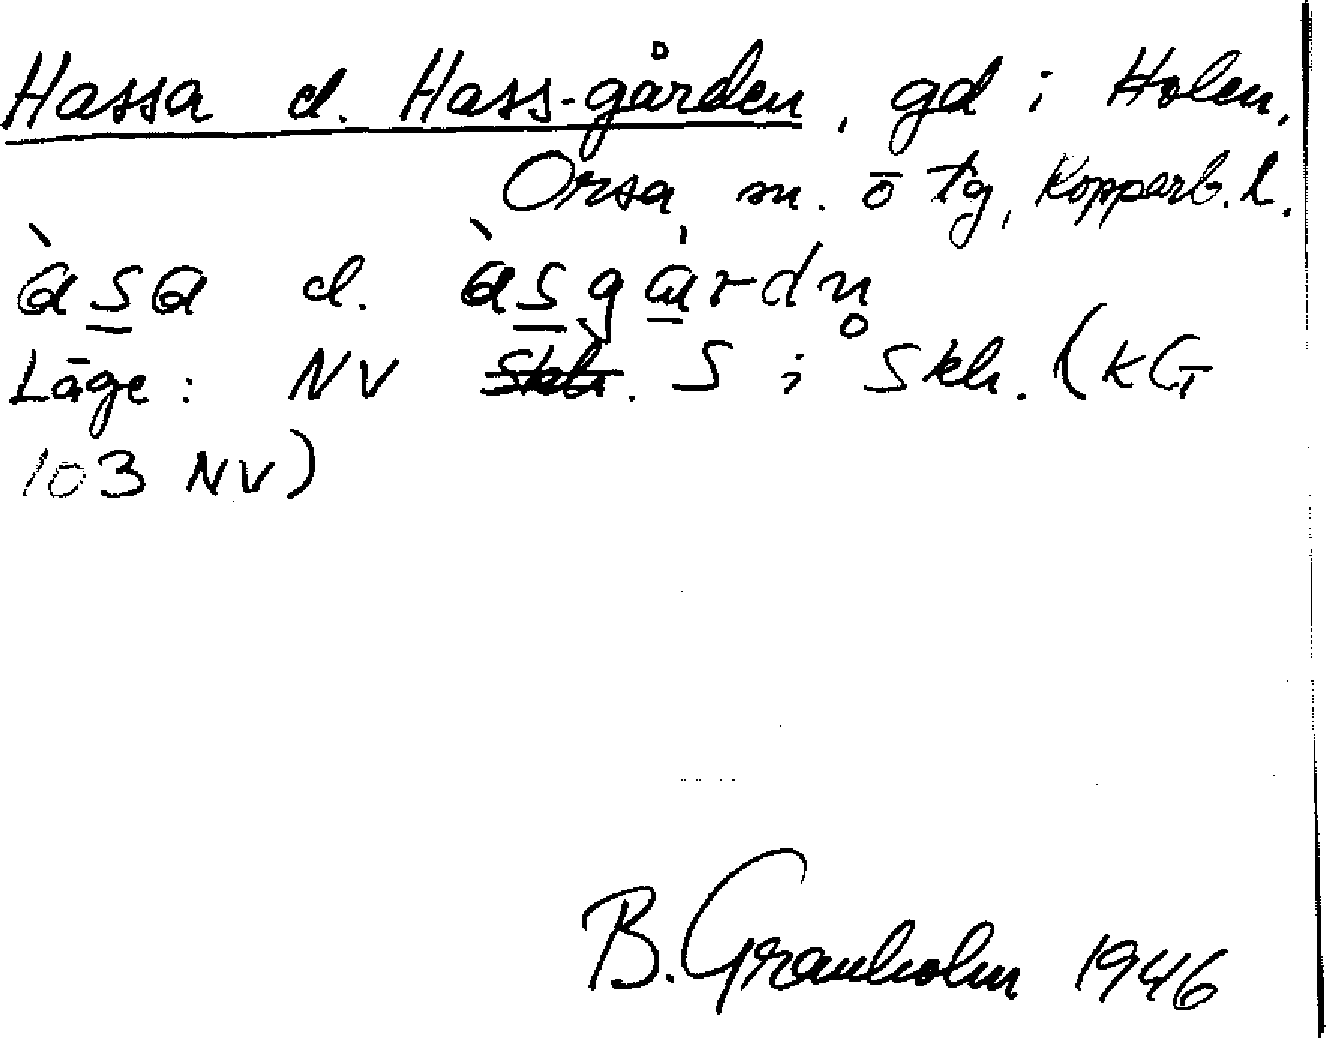 Hassa el. Hass-gården, gd i Holen,
Orsa sn. ö tg, Kopparb. l.
àsa el. àsgàrdn̥
Läge: NV Skh. S i Skh. (KG
103 NV)
B. Granholm 1946